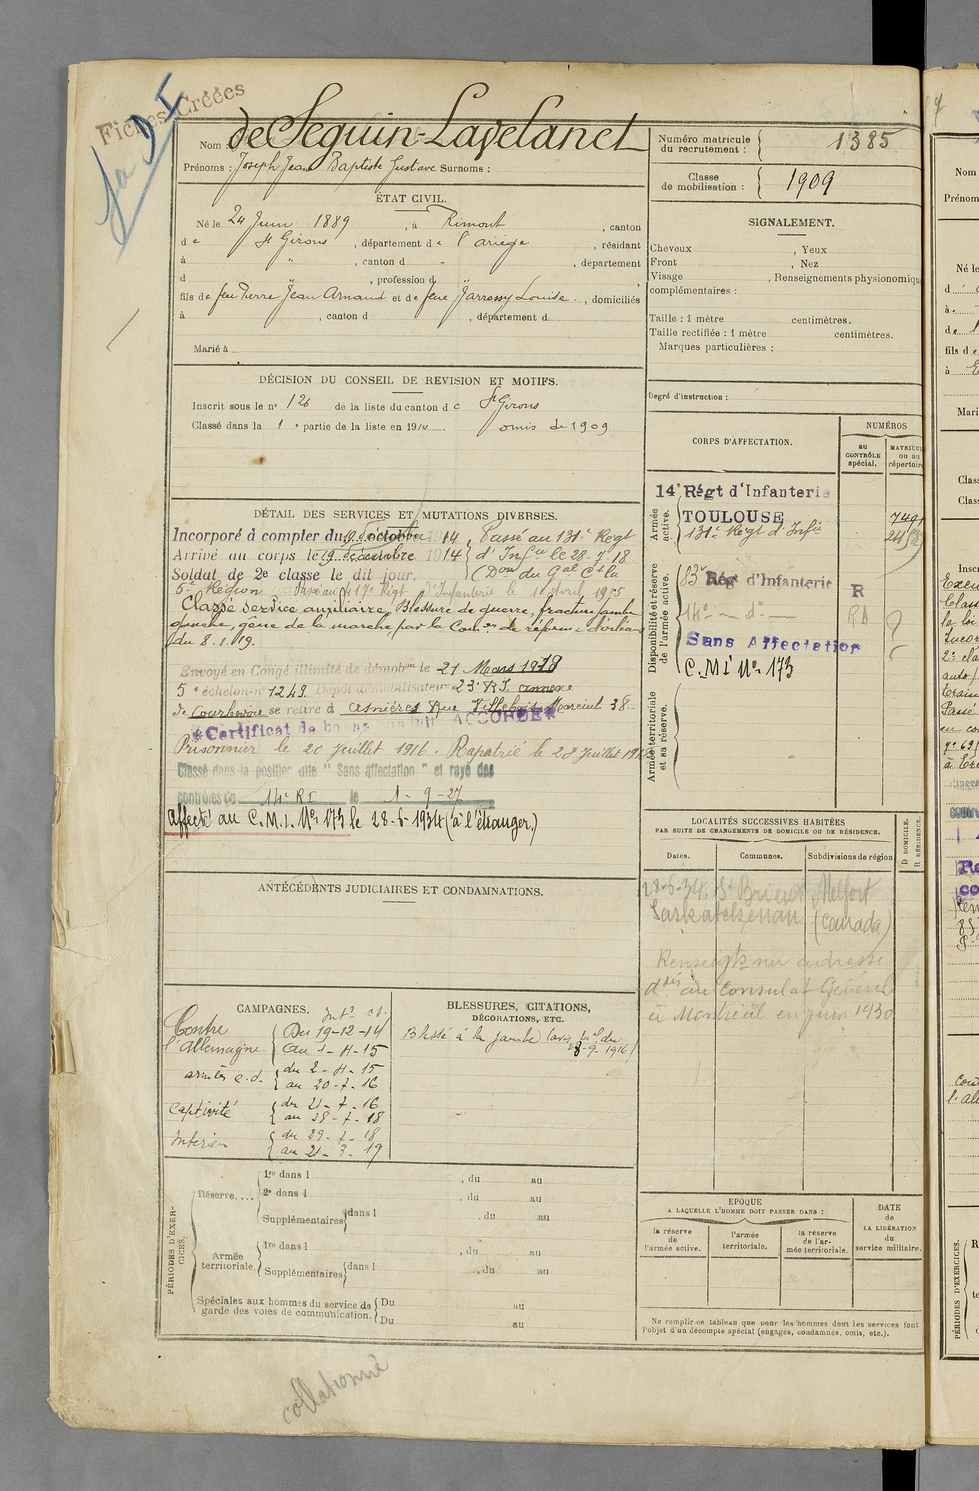 Fiches Créées
Nom : de Seguin-Lavelanet
Prénoms : Joseph Jean Baptiste Gustave Surnoms :
Numéro matricule du recrutement : 1385
Classe de mobilisation : 1909
ÉTAT CIVIL.
Né le 24 Juin 1889, à Rimont, canton
de St Girons, département de l'ariège, résidant
à " , canton d " , département
d " , profession d "
fils de feu Pierre Jean Arnaud et de feue Jarrossy Louise, domiciliés
à , canton d , département d
Marié à
SIGNALEMENT.
Cheveux , Yeux
Front , Nez
Visage , Renseignements physionomiqu
complémentaires :
Taille : 1 mètre centimètres.
Taille rectifiée : 1 mètre centimètres.
Marques particulières :
Degré d'instruction :
DÉCISION DU CONSEIL DE REVISION ET MOTIFS.
Inscrit sous le n° 126 de la liste du canton de St Girons
Classé dans la 1e partie de la liste en 1914. omis de 1909
DÉTAIL DES SERVICES ET MUTATIONS DIVERSES.
Incorporé à compter du 19 décembre 1914
Arrivé au corps le 19 décembre 1914
Soldat de 2e classe le dit jour.
Passé au 131e Regt
d'Infie le 28-7-18
(Don du Gal Ct la
5e Région Passé au 117e Régt d'Infanterie le 1 avril 1915
Classé service auxiliaire, Blessure de guerre, fracture jambe
gauche, gêne de la marche, par la Com.on de réforme d'orléans
du 8.1.19.
Envoyé en Congé illimité de démobon le 21 Mars 1918
5e échelon n° 1249. Dépôt démobilisateur 23e R.I. annexe
de Courbevoie se retire à asnières Rue Villebois Mareuil 38
Certificat de bonne conduite ACCORDÉ
Prisonnier le 20 juillet 1916. Rapatrié le 28 juillet 1918
Classé dans la position dite " Sans affectation " et rayé des
contrôles du 14e RI le 1-9-27
Affecté au C.M.I. No 173 le 28-6-1934 (à l'étranger.)
CORPS D'AFFECTATION.
NUMÉROS
au CONTRÔLE spécial.
MATRICUL ou au répertoire
Armée active.
14e Régt d'Infanterie
TOULOUSE
131e Régt d'Infie
Disponibilité et réserve de l'armée active.
83e Rég d'Infanterie R
14e — d° — RA
Sans Affectation
C.M.I No. 173
Armée territoriale et sa réserve.
LOCALITÉS SUCCESSIVES HABITÉES
PAR SUITE DE CHANGEMENTS DE DOMICILE OU DE RÉSIDENCE.
Dates. Communes. Subdivisions de région
D DOMICILE.
R RÉSIDENCE.
28-6-34. St Brieux Melfort
Saskatchewan (Canada)
Renseigts sur adresse
au Consulat Général
à Montréal en juin 1930
ANTÉCÉDENTS JUDICIAIRES ET CONDAMNATIONS.
CAMPAGNES.
Contre l'allemagne
Du 19-12-14
au 1-4-15
armées
du 2-4-15
au 20-7-16
captivité
du 21-7-16
au 28-7-18
Intérieur
du 29-7-18
au 21-3-19
BLESSURES, CITATIONS,
DÉCORATIONS, ETC.
Blessé à la jambe (avis du
28-9-1916)
PÉRIODES D'EXERCICES.
Réserve....
1re dans l , du au
2e dans l , du au
Supplémentaires dans l , du au
Armée territoriale.
1re dans l , du au
Supplémentaires dans l , du au
Spéciales aux hommes du service de garde des voies de communication.
Du au
Du au
EPOQUE
A LAQUELLE L'HOMME DOIT PASSER DANS :
la réserve de l'armée active.
l'armée territoriale.
la réserve de l'armée territoriale.
DATE de LA LIBÉRATION du service militaire.
Ne remplir ce tableau que pour les hommes dont les services font
l'objet d'un décompte spécial (engagés, condamnés, omis, etc.).
collationné